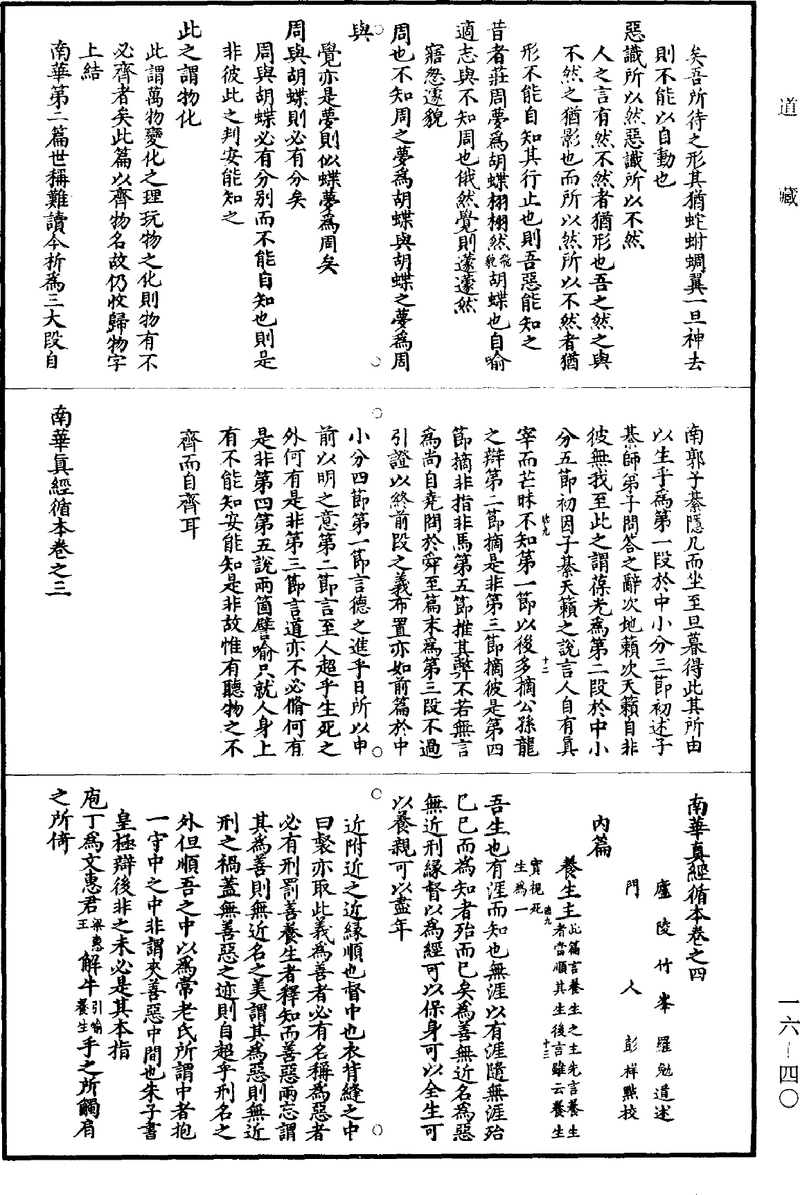 道藏
矣吾所待之形其猶蛇蚹蜩翼一旦神去
則不能以自動也
惡識所以然惡識所以不然
人之言有然不然者猶形也吾之然之與
不然之猶影也而所以然所以不然者猶
形不能自知其行止也則吾惡能知之
昔者莊周夢為胡蝶栩栩然飛貌胡蝶也自喻
適志與不知周也俄然覺則蘧蘧然
寤忽遽貌
周也不知周之夢為胡蝶與胡蝶之夢為周
與
覺亦是夢則似蝶夢為周矣
周與胡蝶則必有分矣
周與胡蝶必有分别而不能自知也則是
非彼此之判安能知之
此之謂物化
此謂萬物變化之理玩物之化則物有不
必齊者矣此篇以齊物名故仍收歸物字
上結
南華第二篇世稱難讀今析為三大段自
南郭子綦隱几而坐至旦暮得此其所由
以生乎為第一段於中小分三節初述子
綦師弟子問答之辭次地籟次天籟自非
彼無我至此之謂葆光為第二段於中小
分五節初因子綦天籟之說言人自有真
宰而芒昧不知第一節以後多摘公孫龍
之辯第二節摘是非第三節摘彼是第四
節摘非指非馬第五節推其弊不若無言
為尚自堯問於舜至篇末為第三段不過
引證以終前段之義布置亦如前篇於中
小分四節第一節言德之進乎日所以申
前以明之意第二節言至人超乎生死之
外何有是非第三節言道亦不必脩何有
是非第四第五說兩箇譬喻只就人身上
有不能知安能知是非故惟有聽物之不
齊而自齊耳
南華真經循本卷之三
南華真經循本卷之四
廬陵竹峯羅勉道述
門人彭祥點校
內篇
養生主此篇言養生之主先言養生者當順其生後言雖云養生實視死生為一
吾生也有涯而知也無涯以有涯隨無涯殆
已已而為知者殆而已矣為善無近名為惡
無近刑緣督以為經可以保身可以全生可
以養親可以盡年
近附近之近緣順也督中也衣背縫之中
曰裻亦取此義為善者必有名稱為惡者
必有刑罰善養生者釋知而善惡兩忘謂
其為善則無近名之美謂其為惡則無近
刑之禍蓋無善惡之迹則自超乎刑名之
外但順吾之中以為常老氏所謂中者抱
一守中之中非謂夾善惡中間也朱子書
皇極辯後非之未必是其本指
庖丁為文惠君梁惠王解牛引喻養生手之所觸肩
之所倚
一六-四〇